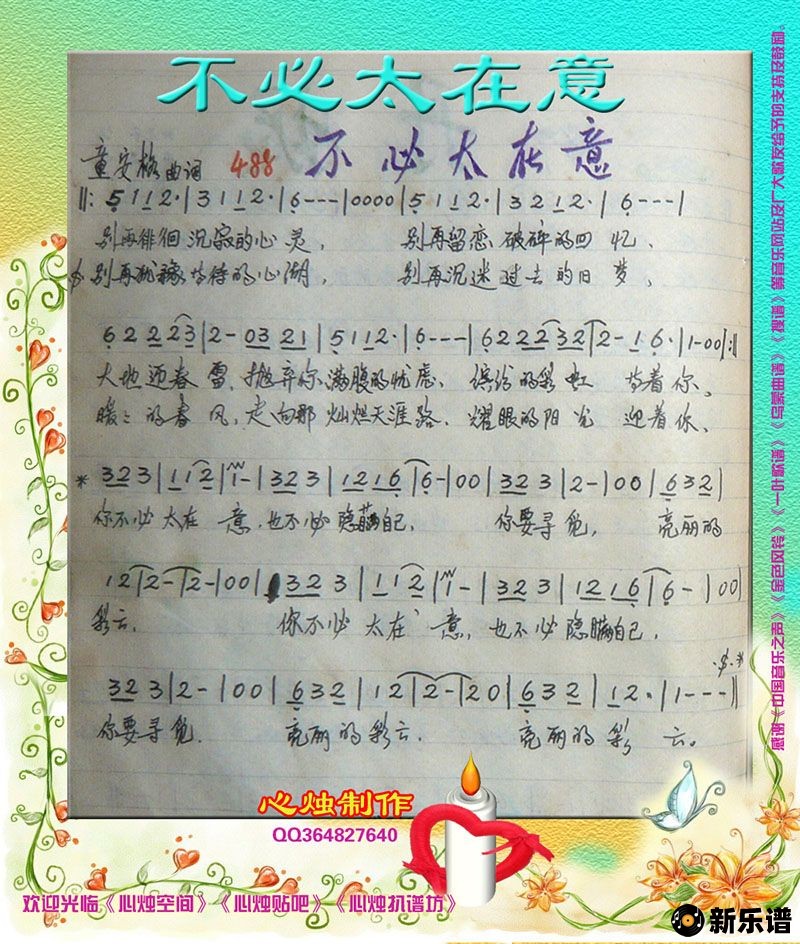 不必太在意
童安格曲词 488 不必太在意
||: 5 1 1 2· | 3 1 1 2· | 6 - - - | 0 0 0 0 | 5 1 1 2· | 3 2 1 2· | 6 - - - |
别再徘徊沉寂的心灵, 别再留恋破碎的回忆、
别再犹豫等待的心湖, 别再沉迷过去的日梦,
6 2 2 2 3 | 2 - 0 3 2 1 | 5 1 1 2· | 6 - - - | 6 2 2 2 3 2 | 2 - 1 6· | 1 - 0 0 :||
大地迎春雷,抛弃你满腹的忧虑. 缤纷的彩虹 等着你、
暖々的春风,走向那灿烂天涯路. 耀眼的阳光 迎着你、
* 3 2 3 | 1 1 2 | 1 - | 3 2 3 | 1 2 1 6 | 6 - | 0 0 | 3 2 3 | 2 - | 0 0 | 6 3 2 |
你不必太在意,也不必隐瞒自己, 你要寻觅, 亮丽的
1 2 | 2 - | 2 - | 0 0 | 3 2 3 | 1 1 2 | 1 - | 3 2 3 | 1 2 1 6 | 6 - | 0 0 |
彩云. 你不必太在意,也不必隐瞒自己,
3 2 3 | 2 - | 0 0 | 6 3 2 | 1 2 | 2 - | 2 0 | 6 3 2 | 1 2· | 1 - - - ||
你要寻觅. 亮丽的彩云. 亮丽的彩云。
心烛制作
QQ364827640
欢迎光临《心烛空间》《心烛贴吧》《心烛扒谱坊》
感谢《中国音乐之声》《金色风铃》《一叶歌谱》《乌蒙曲谱》《搜谱》等音乐网站及广大歌友给予的支持及鼓励。
新乐谱